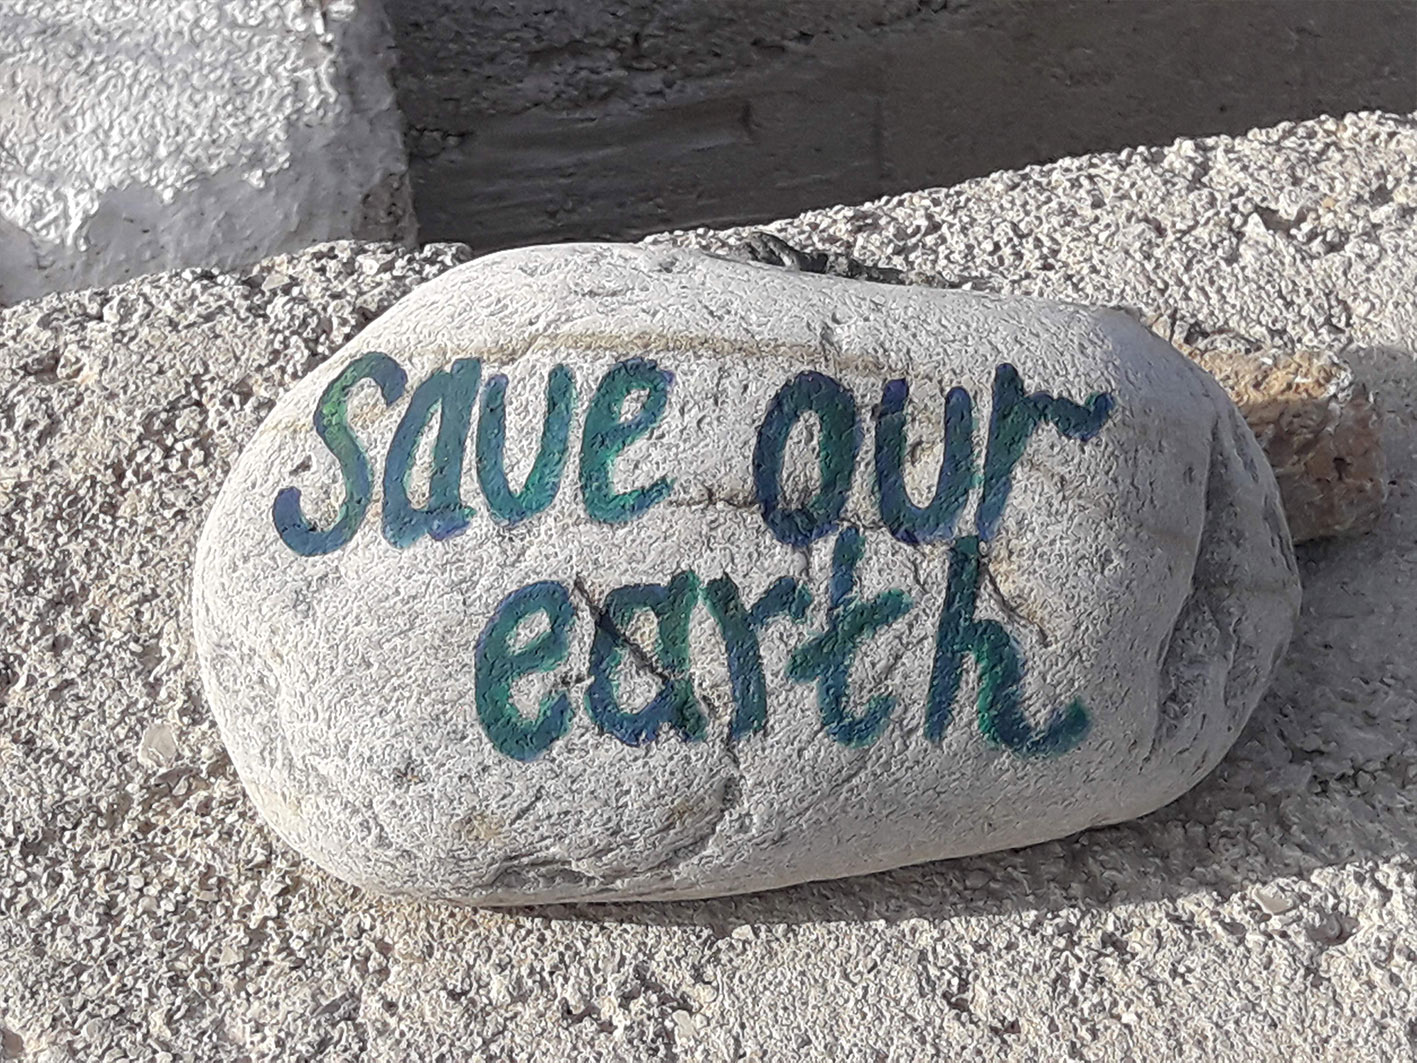 save our
earth